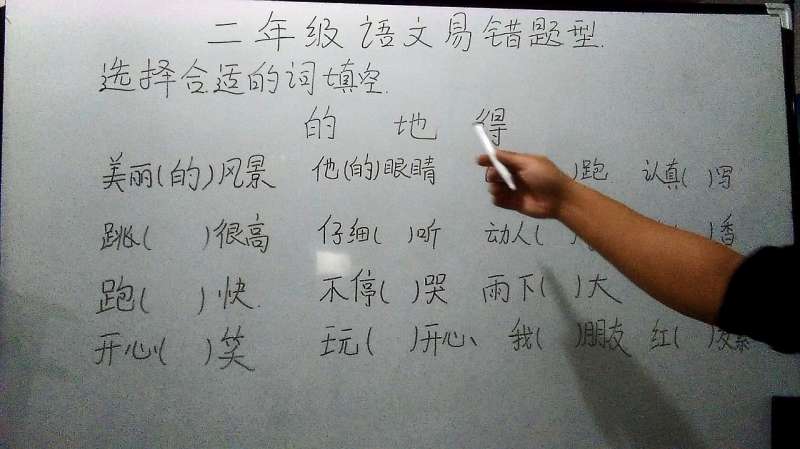 二年级语文易错题型.
选择合适的词填空.
的 地 得
美丽(的)风景 他(的)眼睛 )跑 认真( )写
跳( )很高 仔细( )听 动人( ) )香
跑( )快. 不停( )哭 雨下( )大
开心( )笑 玩( )开心、 我( )朋友 红( )